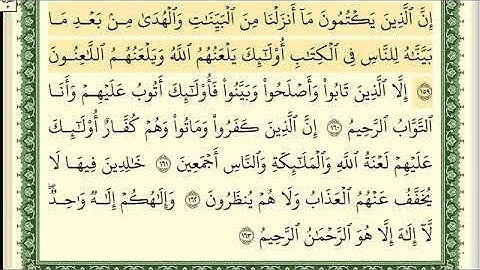 إِنَّ ٱلَّذِينَ يَكْتُمُونَ مَآ أَنزَلْنَا مِنَ ٱلْبَيِّنَٰتِ وَٱلْهُدَىٰ مِنۢ بَعْدِ مَا
بَيَّنَّٰهُ لِلنَّاسِ فِى ٱلْكِتَٰبِ أُو۟لَٰٓئِكَ يَلْعَنُهُمُ ٱللَّهُ وَيَلْعَنُهُمُ ٱللَّٰعِنُونَ
١٥٩ إِلَّا ٱلَّذِينَ تَابُوا۟ وَأَصْلَحُوا۟ وَبَيَّنُوا۟ فَأُو۟لَٰٓئِكَ أَتُوبُ عَلَيْهِمْ وَأَنَا
ٱلتَّوَّابُ ٱلرَّحِيمُ ١٦٠ إِنَّ ٱلَّذِينَ كَفَرُوا۟ وَمَاتُوا۟ وَهُمْ كُفَّارٌ أُو۟لَٰٓئِكَ
عَلَيْهِمْ لَعْنَةُ ٱللَّهِ وَٱلْمَلَٰٓئِكَةِ وَٱلنَّاسِ أَجْمَعِينَ ١٦١ خَٰلِدِينَ فِيهَا لَا
يُخَفَّفُ عَنْهُمُ ٱلْعَذَابُ وَلَا هُمْ يُنظَرُونَ ١٦٢ وَإِلَٰهُكُمْ إِلَٰهٌ وَٰحِدٌ ۖ
لَّآ إِلَٰهَ إِلَّا هُوَ ٱلرَّحْمَٰنُ ٱلرَّحِيمُ ١٦٣